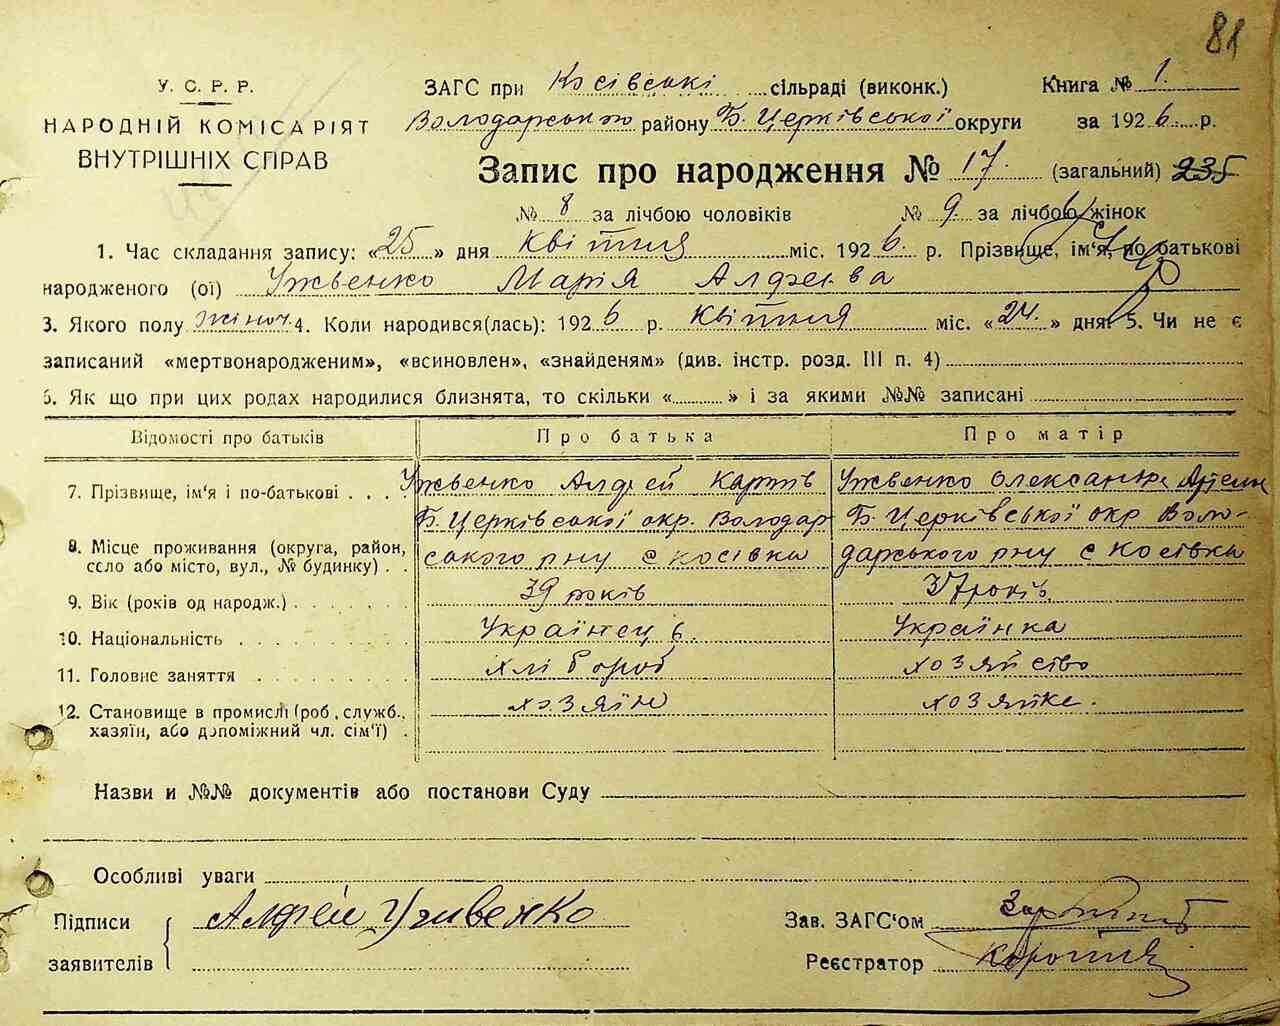 81
У. С. Р. Р.
НАРОДНІЙ КОМІСАРІЯТ
ВНУТРІШНІХ СПРАВ
ЗАГС при Косівські сільраді (виконк.) Книга № 1.
Володарською району Б. Церківської округи за 1926 р.
Запис про народження № 17. (загальний) 235
№ 8 за лічбою чоловіків № 9. за лічбою жінок
1. Час складання запису: «25» дня Квітня міс. 1926. р. Прізвище, ім'я, по батькові
народженого (ої) Ужвенко Марія
3. Якого полу жіноч. 4. Коли народився(лась): 1926 р. Квітня міс. «24.» дня. 5. Чи не є
записаний «мертвонародженим», «всиновлен», «знайденям» (див. інстр. розд. III п. 4)
6. Як що при цих родах народилися близнята, то скільки « » і за якими №№ записані
Відомості про батьків Про батька Про матір
7. Прізвище, ім'я і по-батькові . . . Ужвенко Алфей Карпів Ужвенко Олександра
8. Місце проживання (округа, район, село або місто, вул., № будинку) . .
Б. Церківської окр. Володар
ського рну с Косівка
Б. Церківської окр Воло-
дарського рну с Косівка
9. Вік (років од народж.) 39 років 37 років
10. Національність Українець. Українка
11. Головне заняття хлібороб хозяйство
12. Становище в промислі (роб., служб., хазяїн, або допоміжний чл. сім'ї) . хозяїн хозяйке.
Назви и №№ документів або постанови Суду
Особливі уваги
Підписи
заявителів
Алфей Ужвенко
Зав. ЗАГС'ом
Реєстратор